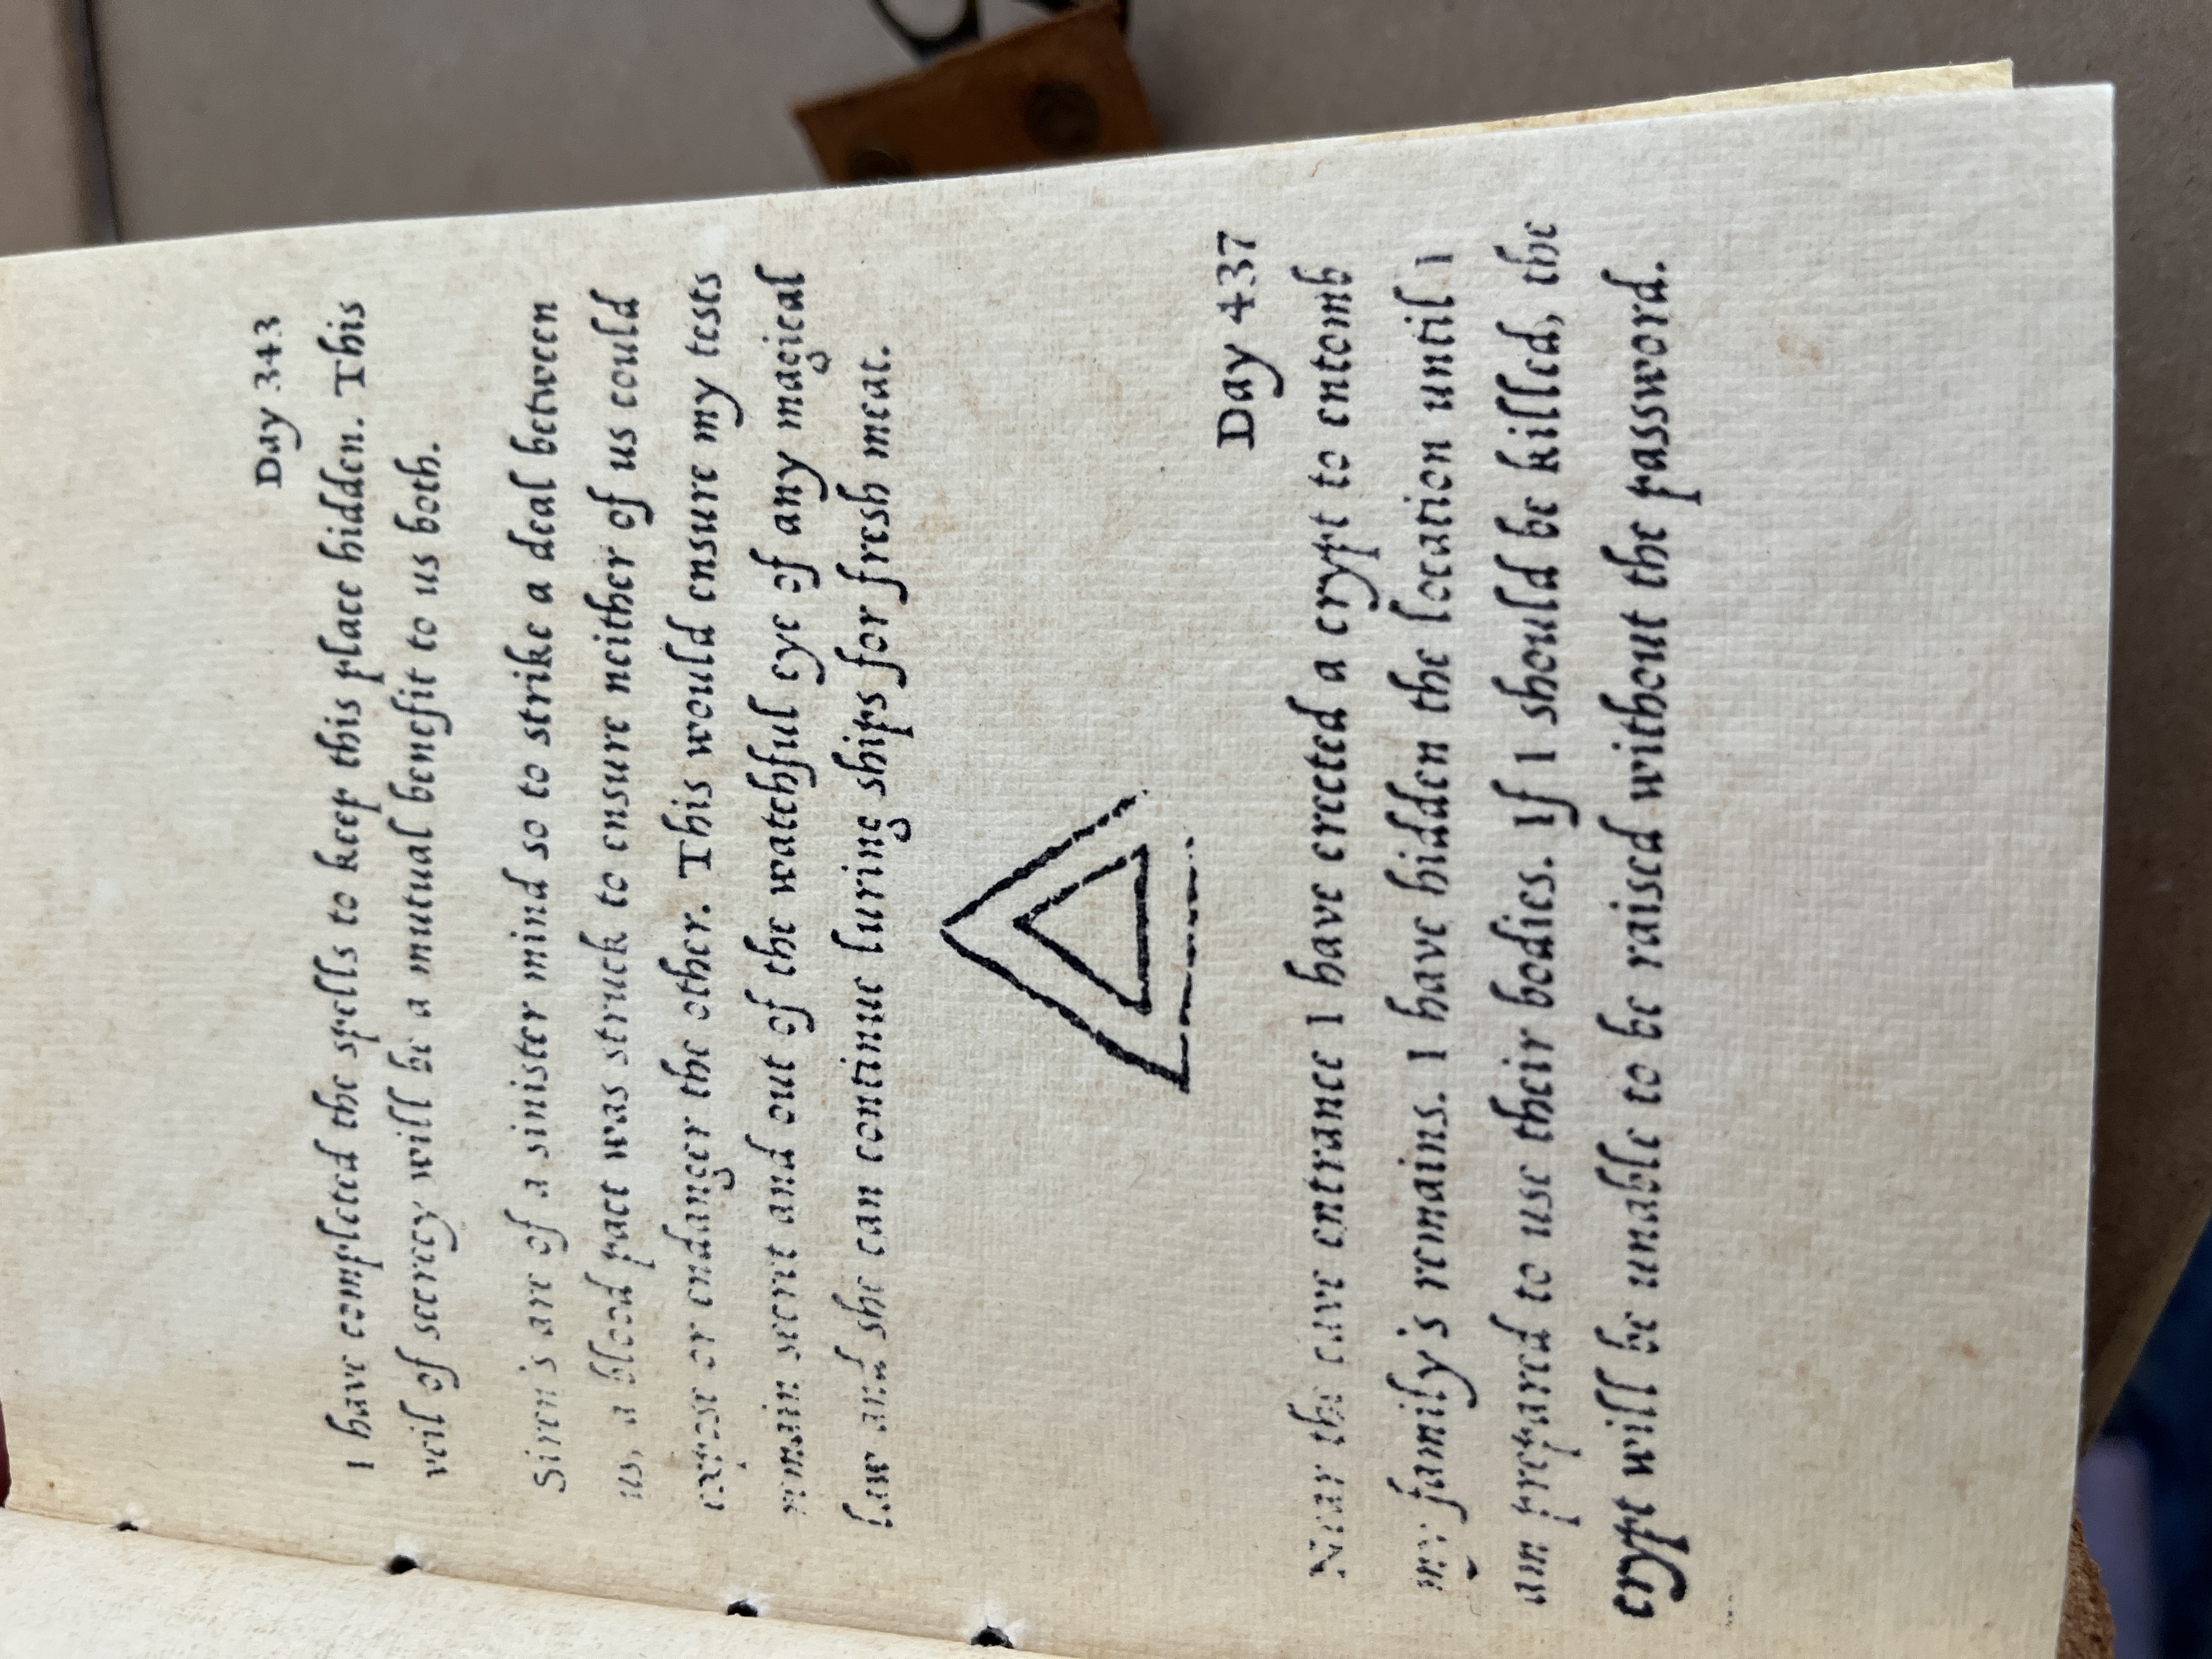 Day 343
I have completed the spells to keep this place hidden. This
veil of secrecy will be a mutual benefit to us both.
Siren's are of a sinister mind so to strike a deal between
us, a blood pact was struck to ensure neither of us could
expose or endanger the other. This would ensure my tests
remain secret and out of the watchful eye of any magical
law and she can continue luring ships for fresh meat.
Day 437
Near the cave entrance I have erected a crypt to entomb
my family's remains. I have hidden the location until I
am prepared to use their bodies. If I should be killed, the
crypt will be unable to be raised without the password.